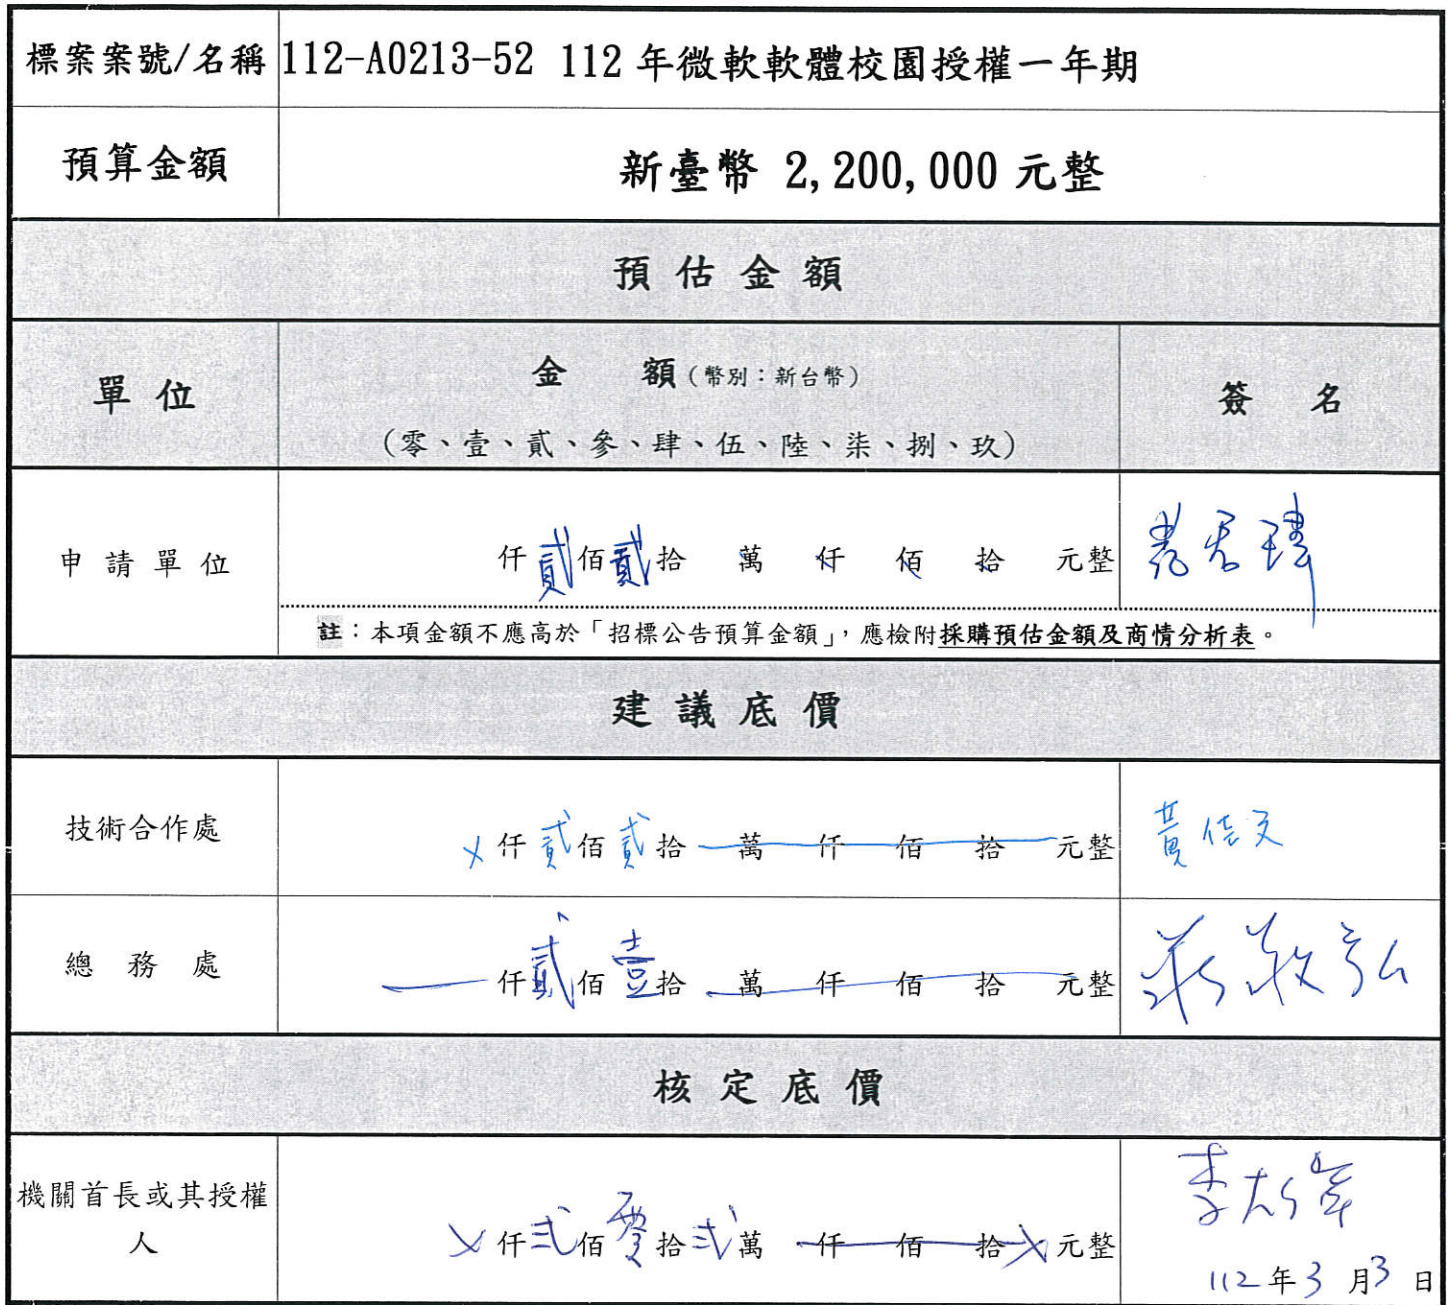 標案案號/名稱 112-A0213-52 112 年微軟軟體校園授權一年期
預算金額 新臺幣 2,200,000 元整
預估金額
單位 金 額(幣別:新台幣) 簽 名
(零、壹、貳、參、肆、伍、陸、柒、捌、玖)
申請單位 仟貳佰貳拾 萬 仟 佰 拾 元整
註:本項金額不應高於「招標公告預算金額」,應檢附採購預估金額及商情分析表。
建議底價
技術合作處 X仟貳佰貳拾 萬 仟 佰 拾 元整 黃佳文
總務處 仟貳佰壹拾 萬 仟 佰 拾 元整 敬弘
核定底價
機關首長或其授權人 X仟弍佰零拾弍萬 仟 佰 拾X元整 李大偉
112年3月3日